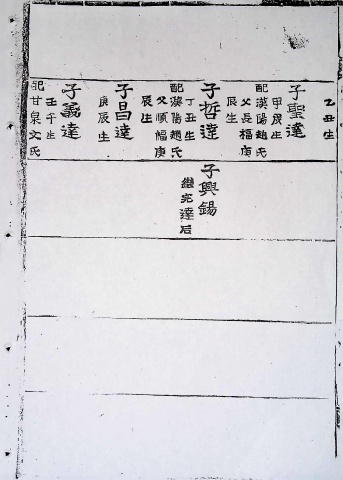 乙丑生
子聖達
甲戌生
配漢陽趙氏
父長福庚
辰生
子哲達
丁丑生
配漢陽趙氏
父順福庚
辰生
子昌達
庚辰生
子義達
壬午生
配甘泉文氏
子興錫
繼完達后